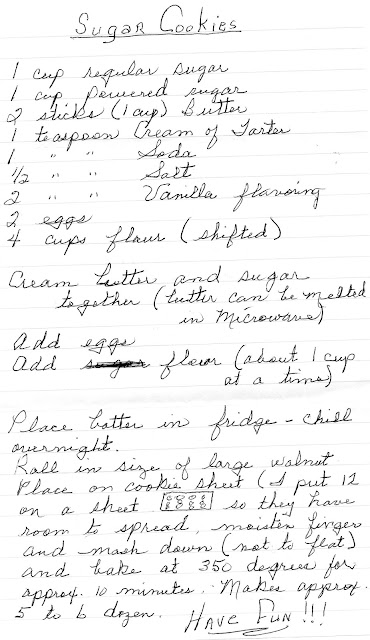 Sugar Cookies
1 cup regular sugar
1 cup powered sugar
2 sticks (1 cup) Butter
1 teaspoon Cream of Tarter
1 " " Soda
1/2 " " Salt
2 " " Vanilla flavoring
2 eggs
4 cups flour (shifted)
Cream butter and sugar
together (butter can be melted
in Microwave)
Add eggs
Add sugar flour (about 1 cup
at a time)
Place batter in fridge - chill
overnight.
Roll in size of large walnut
Place on cookie sheet (I put 12
on a sheet so they have
room to spread moisten finger
and mash down (not to flat)
and bake at 350 degrees for
approx. 10 minutes. Makes approx.
5 to 6 dozen. Have Fun!!!